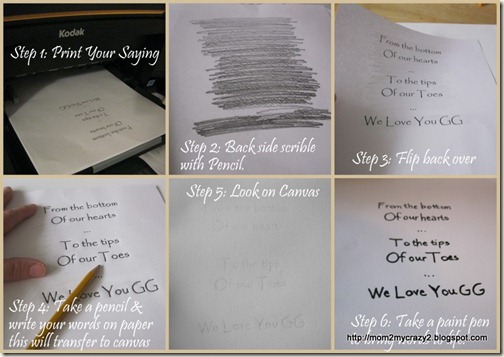 Kodak
Step 1: Print Your Saying
From the bottom
Of our hearts
...
To the tips
Of our Toes
...
We Love You GG
Step 2: Back side scrible
with Pencil.
From the bottom
Of our hearts
...
To the tips
Of our Toes
...
We Love You GG
Step 3: Flip back over
From the bottom
Of our hearts
...
To the tips
Of our Toes
...
We Love You GG
Step 4: Take a pencil &
write your words on paper
this will transfer to canvas
Step 5: Look on Canvas
From the bottom
Of our hearts
...
To the tips
Of our Toes
...
We Love You GG
Step 6: Take a paint pen
http://mom2mycrazy2.blogspot.com